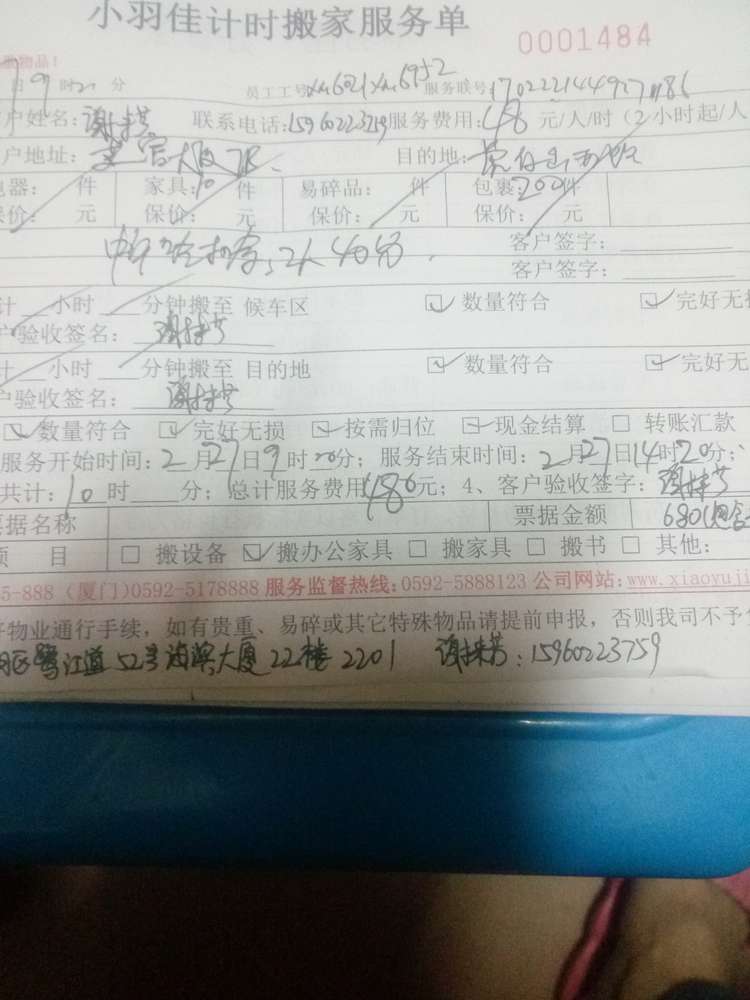 小羽佳计时搬家服务单 0001484
物品！
日 9 时 20 分 员工工号 xm6021 xm6952 服务联号
户姓名： 谢 联系电话：15960223759 服务费用：48 元/人/时（2小时起/人
户地址： 大厦 目的地：
电器： 件 家具：10 件 易碎品： 件 包裹：200件
保价： 元 保价： 元 保价： 元 保价： 元
40分 客户签字：
客户签字：
计 小时 分钟搬至 候车区 ☑ 数量符合 ☑ 完好无
户验收签名：
计 小时 分钟搬至 目的地 ☑ 数量符合 ☑ 完好无
户验收签名：
☑ 数量符合 ☑ 完好无损 ☑ 按需归位 ☑ 现金结算 □ 转账汇款
服务开始时间：2月27日9时20分； 服务结束时间：2月27日14时20分；
共计：10时 分； 总计服务费用 480元；4、客户验收签字：
票据名称 票据金额 680
项 目 □ 搬设备 ☑ 搬办公家具 □ 搬家具 □ 搬书 □ 其他：
5-888（厦门）0592-5178888 服务监督热线：0592-5888123 公司网站：www.xiaoyuji
物业通行手续，如有贵重、易碎或其它特殊物品请提前申报，否则我司不予
区鹭江道52号海滨大厦22楼2201 谢 ：15960223759